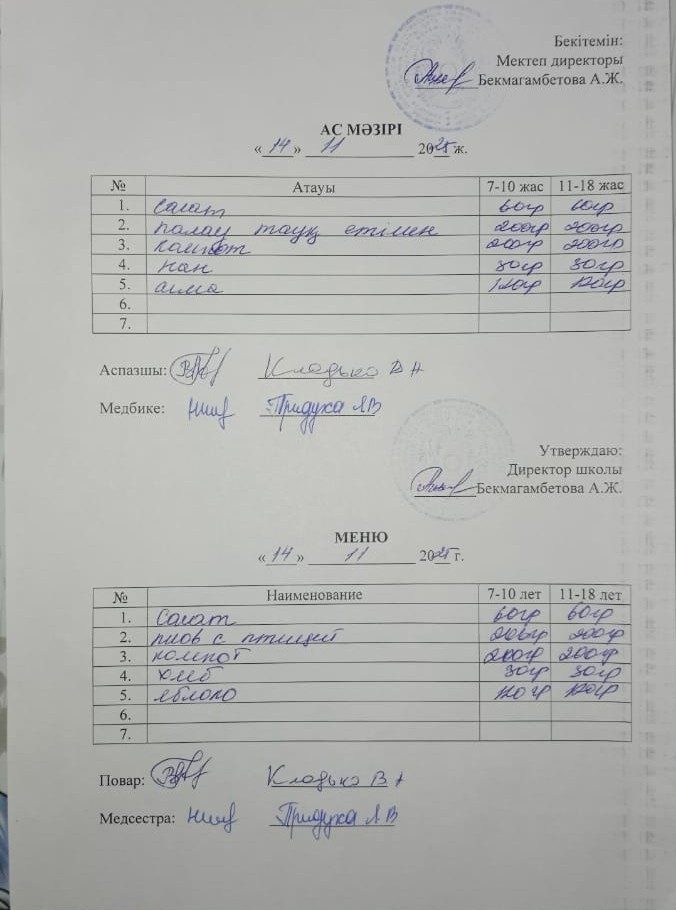 Бекітемін:
Мектеп директоры
Бекмагамбетова А.Ж.
АС МӘЗІРІ
«14» 11 2025 ж.
№ Атауы 7-10 жас 11-18 жас
1. Салат 60гр 60гр
2. палау тауық етімен 200гр 200гр
3. компот 200гр 200гр
4. нан 30гр 30гр
5. алма 120гр 120гр
6.
7.
Аспазшы: Кладько
Медбике: Придуха ЛВ
Утверждаю:
Директор школы
Бекмагамбетова А.Ж.
МЕНЮ
«14» 11 2025 г.
№ Наименование 7-10 лет 11-18 лет
1. Салат 60гр 60гр
2. плов с птицей 200гр 200гр
3. компот 200гр 200гр
4. хлеб 30гр 30гр
5. яблоко 120гр 120гр
6.
7.
Повар: Кладько
Медсестра: Придуха ЛВ